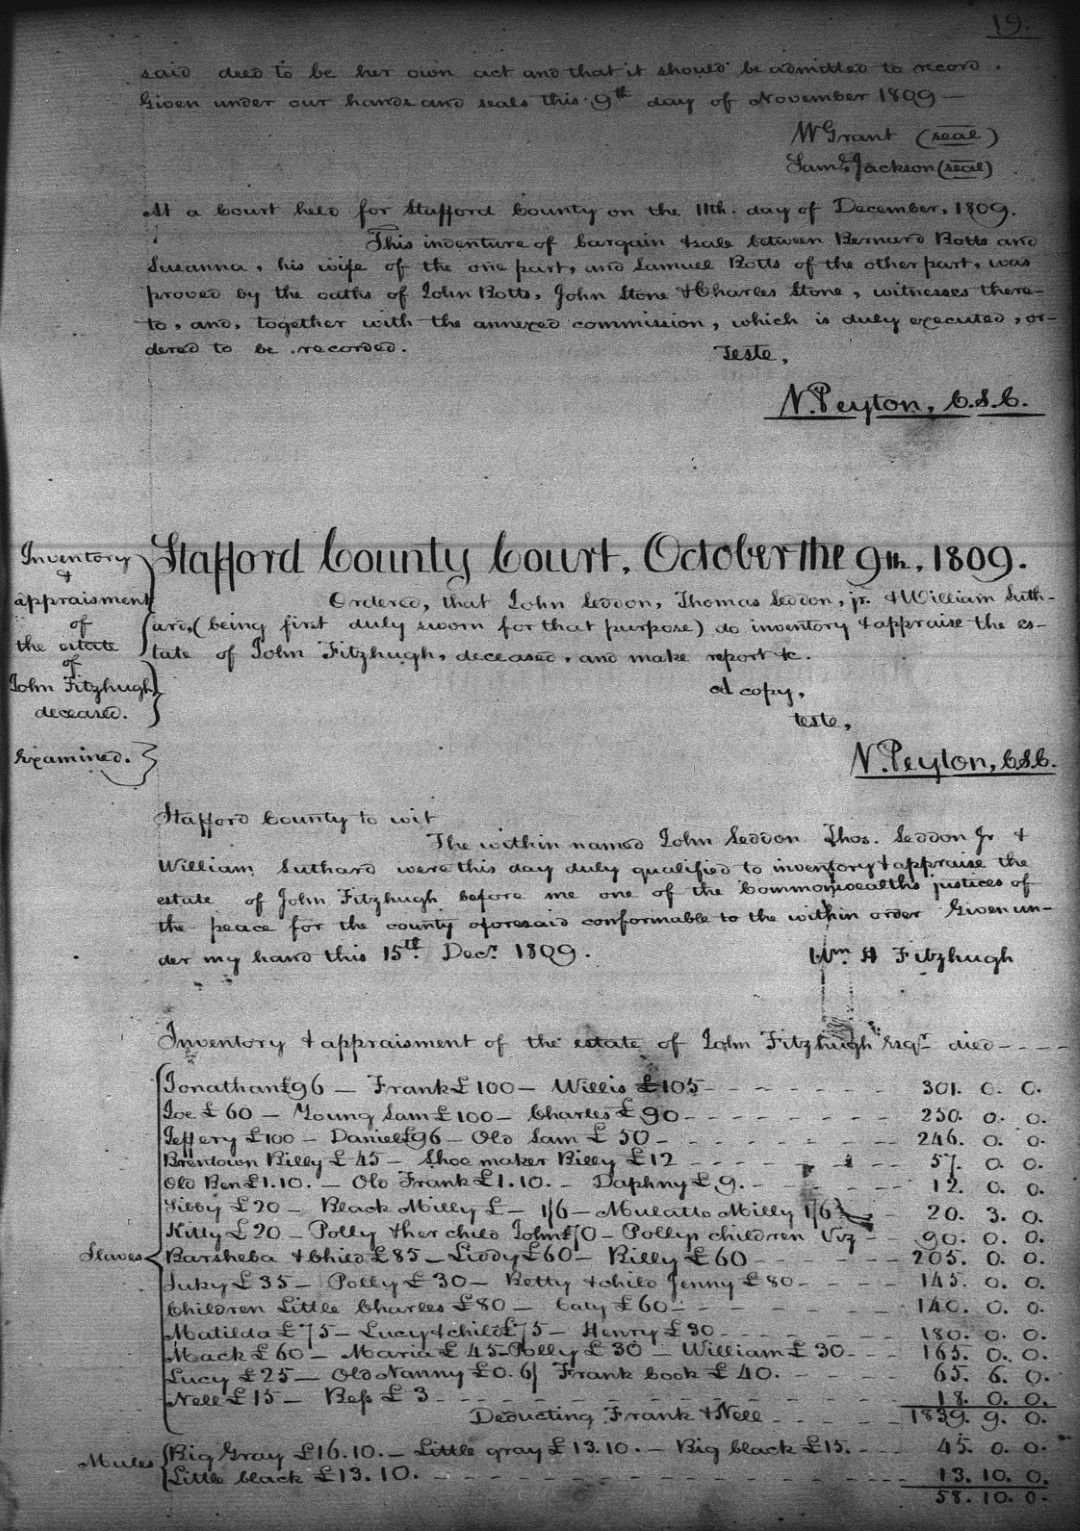 19.
said deed to be her own act and that it should be admitted to record.
Given under our hands and seals this 9th day of November 1809 —
W Grant (seal)
Saml. Jackson (seal)
At a Court held for Stafford County on the 11th. day of December, 1809.
This indenture of bargain & sale between Bernard Botts and
Susanna, his wife of the one part, and Samuel Botts of the other part, was
proved by the oaths of John Botts, John Stone & Charles Stone, witnesses there-
to, and, together with the annexed commission, which is duly executed, or-
dered to be recorded.
Teste,
N. Peyton, C.S.C.
Inventory
&
appraisment
of
the estate
of
John Fitzhugh
deceased.
Examined.
Stafford County Court, October the 9th, 1809.
Ordered, that John Seddon, Thomas Seddon, jr. & William Suth-
ard, (being first duly sworn for that purpose) do inventory & appraise the es-
tate of John Fitzhugh, deceased, and make report &c.
a copy,
teste,
N. Peyton, C.S.C.
Stafford County to wit
The within named John Seddon Thos. Seddon Jr &
William Suthard were this day duly qualified to inventory & appraise the
estate of John Fitzhugh before me one of the Commonwealth's justices of
the peace for the county aforesaid conformable to the within order Given un-
der my hand this 15th Decr. 1809.
Wm. H Fitzhugh
Inventory & appraisment of the estate of John Fitzhugh Esqr. died - - - -
Slaves
Jonathan £96 — Frank £100 — Willis £105 - - - - - - 301. 0. 0.
Joe £60 — Young Sam £100 — Charles £90 - - - - - - 250. 0. 0.
Jeffery £100 — Daniel £96 — Old Sam £50 - - - - - - 246. 0. 0.
Brentown Billy £45 — Shoe maker Billy £12 - - - - - - 57. 0. 0.
Old Ben £1.10. — Old Frank £1.10. — Daphny £9. - - - - - 12. 0. 0.
Sibby £20 — Black Milly £ — 1/6 — Mulatto Milly 1/6 - - 20. 3. 0.
Kitty £20 — Polly & her child John £70 — Pollys children Viz - - 90. 0. 0.
Barsheba & Child £85 — Liddy £60 — Billy £60 - - - - - 205. 0. 0.
Juky £35 — Polly £30 — Betty & child Jenny £80 - - - - 145. 0. 0.
Children Little Charles £80 — Caty £60 - - - - - - 140. 0. 0.
Matilda £75 — Lucy & child £75 — Henry £30 - - - - - - 180. 0. 0.
Mack £60 — Maria £45 — Polly £30 — William £30 - - - 165. 0. 0.
Lucy £25 — Old Nanny £0. 6/ Frank Cook £40. - - - - - 65. 6. 0.
Nell £15 — Bess £3 - - - - - - 18. 0. 0.
Deducting Frank & Nell - - - - - 1839. 9. 0.
Mules
Big Gray £16.10. — Little gray £13.10. — Big black £15. - - - 45. 0. 0.
Little black £13.10. - - - - - - 13. 10. 0.
58. 10. 0.